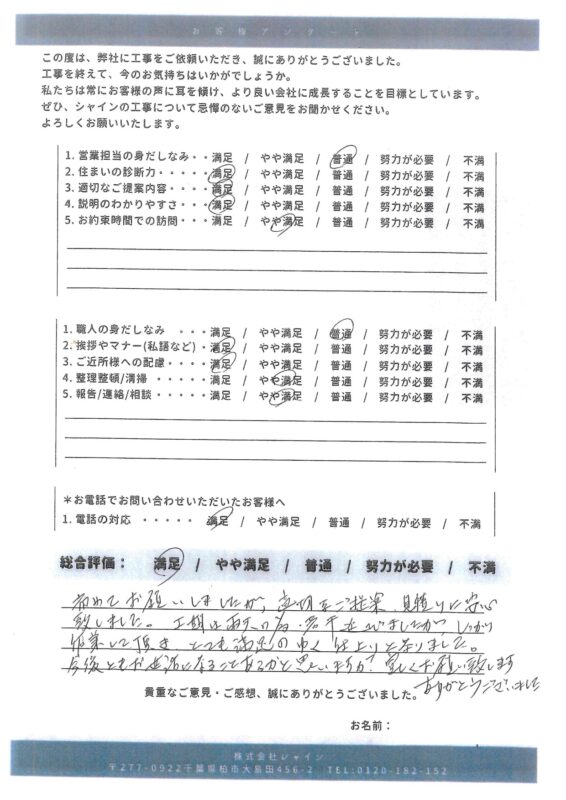 お客様アンケート
この度は、弊社に工事をご依頼いただき、誠にありがとうございました。
工事を終えて、今のお気持ちはいかがでしょうか。
私たちは常にお客様の声に耳を傾け、より良い会社に成長することを目標としています。
ぜひ、シャインの工事について忌憚のないご意見をお聞かせください。
よろしくお願いいたします。
1. 営業担当の身だしなみ・・満足 / やや満足 / 普通 / 努力が必要 / 不満
2. 住まいの診断力・・・・・満足 / やや満足 / 普通 / 努力が必要 / 不満
3. 適切なご提案内容・・・・満足 / やや満足 / 普通 / 努力が必要 / 不満
4. 説明のわかりやすさ・・・満足 / やや満足 / 普通 / 努力が必要 / 不満
5. お約束時間での訪問・・・満足 / やや満足 / 普通 / 努力が必要 / 不満
1. 職人の身だしなみ ・・・満足 / やや満足 / 普通 / 努力が必要 / 不満
2. 挨拶やマナー(私語など)・満足 / やや満足 / 普通 / 努力が必要 / 不満
3. ご近所様への配慮・・・・満足 / やや満足 / 普通 / 努力が必要 / 不満
4. 整理整頓/清掃 ・・・・・満足 / やや満足 / 普通 / 努力が必要 / 不満
5. 報告/連絡/相談・・・・・満足 / やや満足 / 普通 / 努力が必要 / 不満
＊お電話でお問い合わせいただいたお客様へ
1. 電話の対応 ・・・・・ 満足 / やや満足 / 普通 / 努力が必要 / 不満
総合評価： 満足 / やや満足 / 普通 / 努力が必要 / 不満
初めてお願いしましたが、適切なご提案、見積りに安心
致しました。工期は雨天の為、若干延びましたが、しっかり
作業して頂き とても満足のゆく仕上りとなりました。
今後ともお世話になることあるかと思いますが、宜しくお願い致します
ありがとうございました
貴重なご意見・ご感想、誠にありがとうございました。
お名前：
株式会社シャイン
〒277-0922千葉県柏市大島田456-2 TEL:0120-182-152